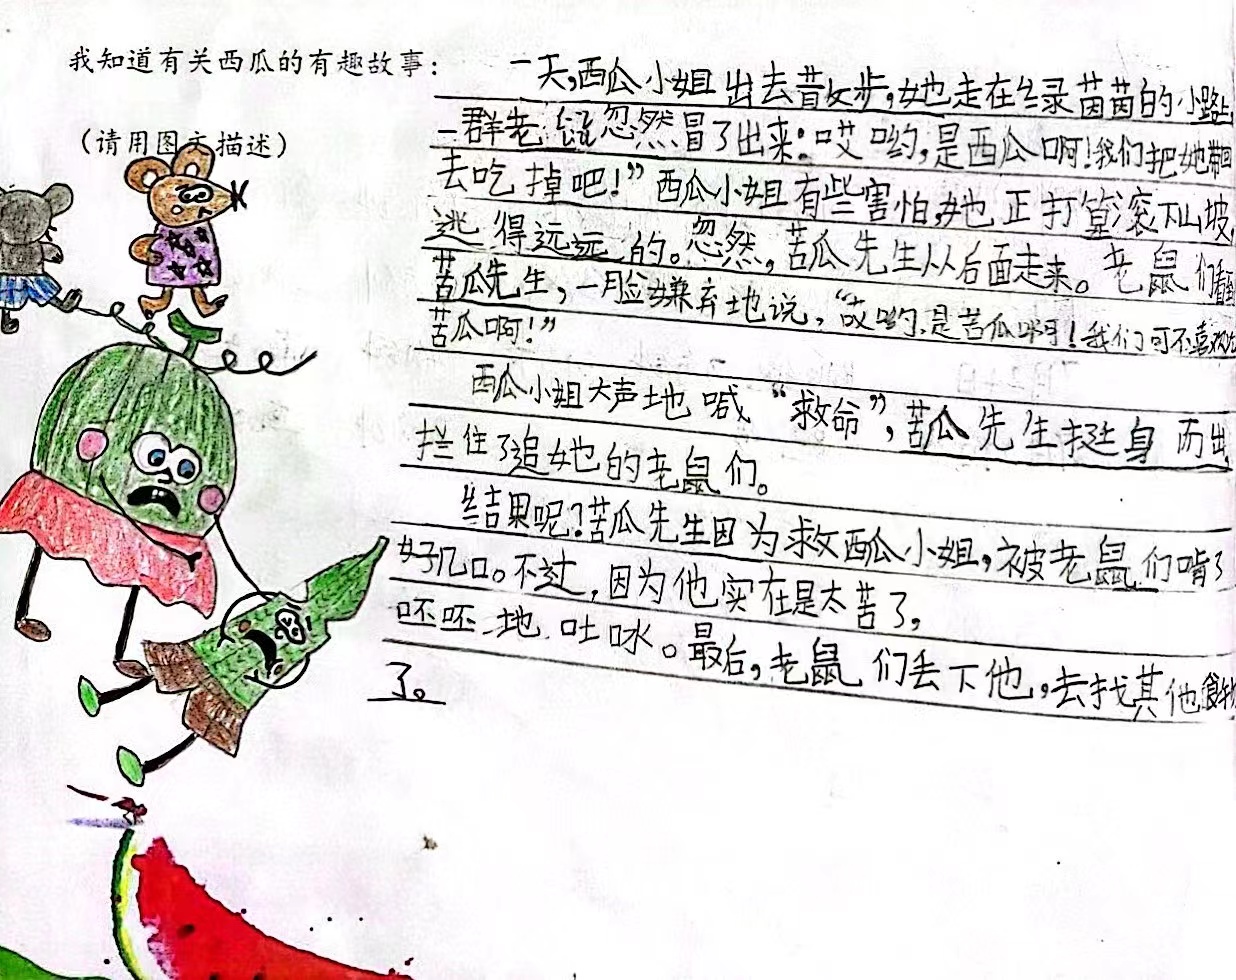 我知道有关西瓜的有趣故事：
（请用图文描述）
一天,西瓜小姐出去散步,她走在绿茵茵的小路上
一群老鼠忽然冒了出来:哎哟,是西瓜啊!我们把她带回
去吃掉吧!”西瓜小姐有些害怕,她正打算滚下山坡,
逃得远远的。忽然,苦瓜先生从后面走来。老鼠们看到
苦瓜先生,一脸嫌弃地说,“哎哟,是苦瓜啊!我们可不喜欢吃
苦瓜啊!”
西瓜小姐大声地喊“救命”,苦瓜先生挺身而出
拦住了追她的老鼠们。
结果呢?苦瓜先生因为救西瓜小姐,被老鼠们啃了
好几口。不过,因为他实在是太苦了,
呸呸地吐口水。最后,老鼠们丢下他,去找其他食物
了。